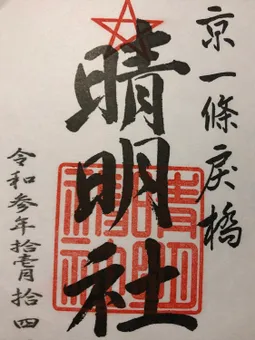 京一條戻橋
晴明社
晴明神社
令和参年拾壱月拾四